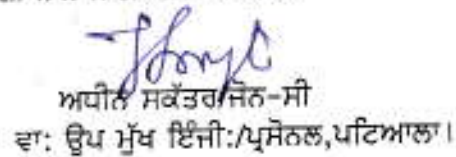 ਅਧੀਨ ਸਕੱਤਰ/ਜੋਨ-ਸੀ
ਵਾ: ਉਪ ਮੁੱਖ ਇੰਜੀ:/ਪ੍ਰਸੋਨਲ,ਪਟਿਆਲਾ।